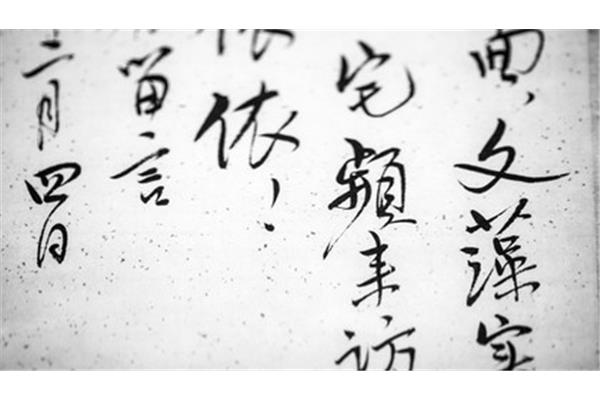 文藻
宅頻来訪
依依！
留言
二月四日